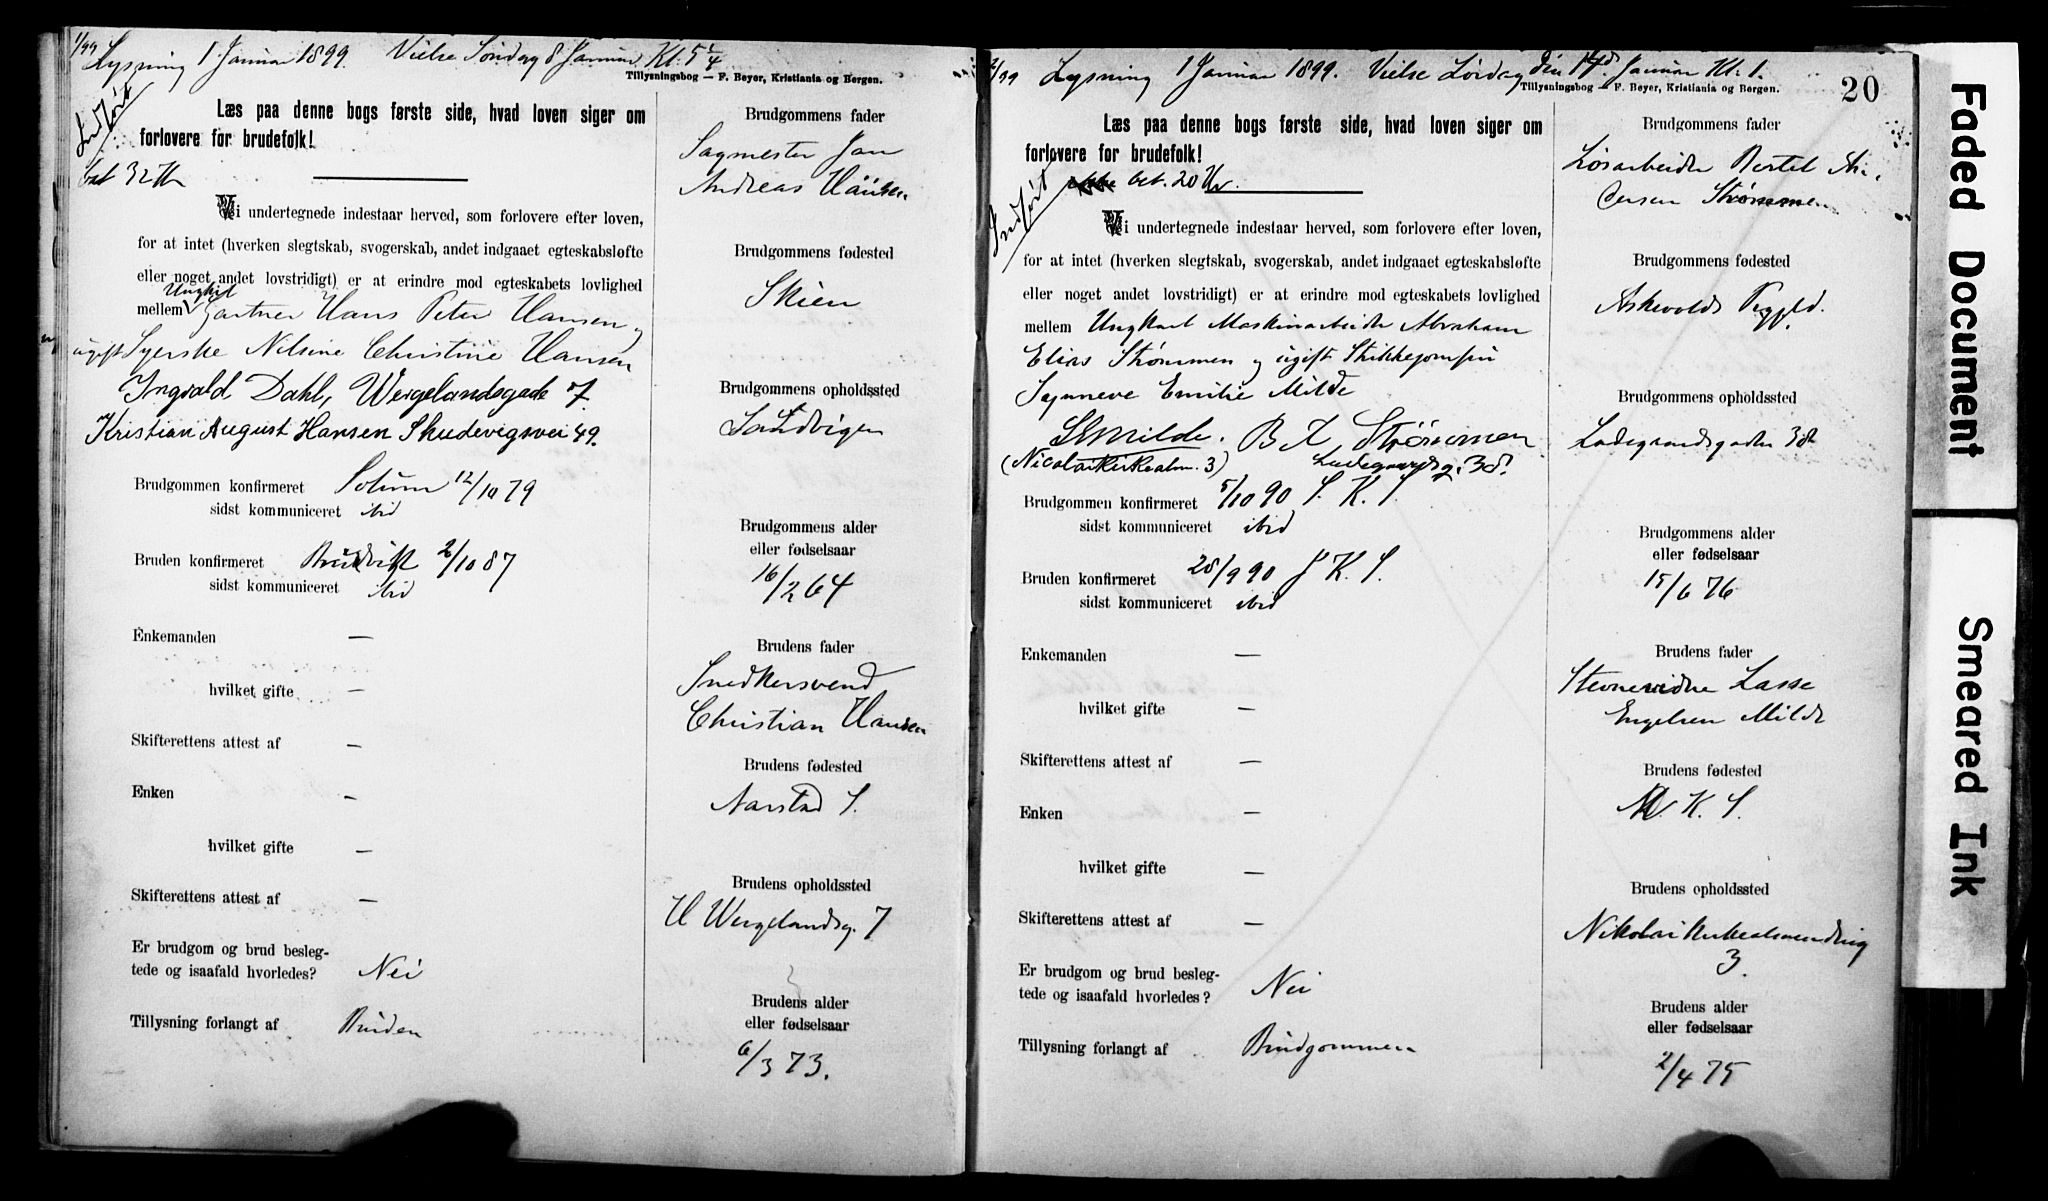 1/99 Lysning 1 Januar 1899. Vielse Søndag 8 Januar Kl. 5 1/4
Tillysningsbog — F. Beyer, Kristiania og Bergen.
Indført
bet 32 Kr
Læs paa denne bogs første side, hvad loven siger om
forlovere for brudefolk!
Vi undertegnede indestaar herved, som forlovere efter loven,
for at intet (hverken slegtskab, svogerskab, andet indgaaet egteskabsløfte
eller noget andet lovstridigt) er at erindre mod egteskabets lovlighed
mellem Ungkarl Gartner Hans Peter Hansen og
ugift Syerske Nilsine Christine Hansen
Ingvald Dahl, Wergelandsgade 7.
Kristian August Hansen Skudevigsvei 49.
Brudgommen konfirmeret Solum 12/10 79
sidst kommuniceret ibid
Bruden konfirmeret 2/10 87
sidst kommuniceret ibid
Enkemanden —
hvilket gifte —
Skifterettens attest af —
Enken —
hvilket gifte —
Skifterettens attest af —
Er brudgom og brud besleg-
tede og isaafald hvorledes? Nei
Tillysning forlangt af Bruden
Brudgommens fader
Sagmester Jan
Andreas Hansen
Brudgommens fødested
Skien
Brudgommens opholdssted
Sandvigen
Brudgommens alder
eller fødselsaar
16/2 64
Brudens fader
Snedkersvend
Christian Hansen
Brudens fødested
Aarstad S.
Brudens opholdssted
H Wergelandsg. 7
Brudens alder
eller fødselsaar
6/3 73.
2/99 Lysning 1 Januar 1899. Vielse Lørdag den 14d Januar Kl. 1.
Tillysningsbog — F. Beyer, Kristiania og Bergen.
20
Indført
Læs paa denne bogs første side, hvad loven siger om
forlovere for brudefolk!
bet. 20 Kr.
Vi undertegnede indestaar herved, som forlovere efter loven,
for at intet (hverken slegtskab, svogerskab, andet indgaaet egteskabsløfte
eller noget andet lovstridigt) er at erindre mod egteskabets lovlighed
mellem Ungkarl Maskinarbeider Abraham
Elias Strømmen og ugift Strikkejomfru
Synneve Emilie Milde
Milde. B A Strømmen
(Nicolaikirkealm. 3) Ladegaardsg. 38.
Brudgommen konfirmeret 5/10 90 S. K. S
sidst kommuniceret ibid
Bruden konfirmeret 28/9 90 J K. S.
sidst kommuniceret ibid
Enkemanden —
hvilket gifte —
Skifterettens attest af —
Enken —
hvilket gifte —
Skifterettens attest af —
Er brudgom og brud besleg-
tede og isaafald hvorledes? Nei
Tillysning forlangt af Brudgommen
Brudgommens fader
Løsarbeider Bertel An-
dersen Strømmen
Brudgommens fødested
Askevolds Prgjld.
Brudgommens opholdssted
Ladegaardsgaden 38
Brudgommens alder
eller fødselsaar
15/6 76
Brudens fader
Stevnevidne Lasse
Engelsen Milde
Brudens fødested
N. K. S.
Brudens opholdssted
Nikolaikirkealmending
3.
Brudens alder
eller fødselsaar
2/4 75
Faded Document
Smeared Ink